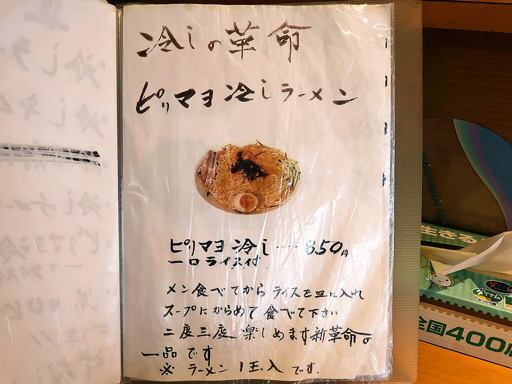 冷しの革命
ピリマヨ冷しラーメン
ピリマヨ冷し・・・850円
一口ライス付
メン食べてからライスを皿に入れ
スープにからめて食べて下さい
二度三度楽しめます新革命の
一品です
※ ラーメン1玉入です。
生きる
全国400店